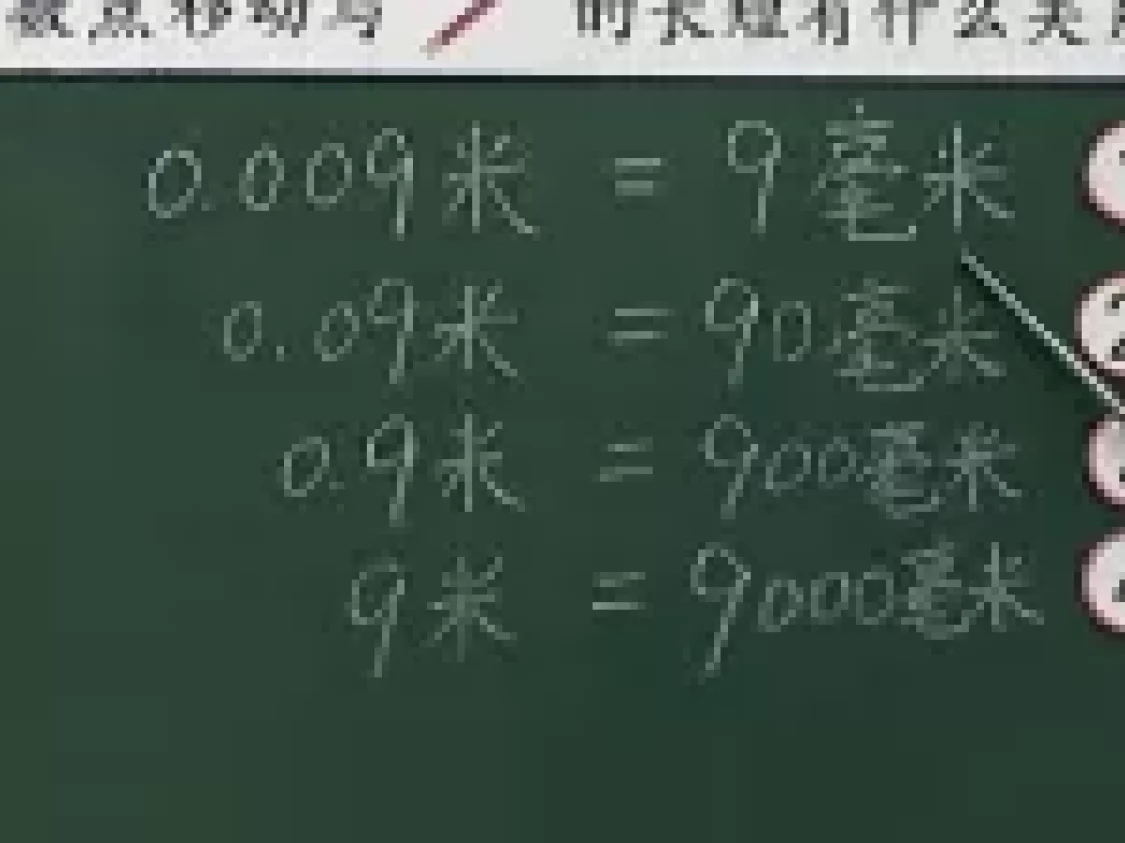 数点移动与 的长短有什么关
0.009米 = 9毫米
0.09米 = 90毫米
0.9米 = 900毫米
9米 = 9000毫米